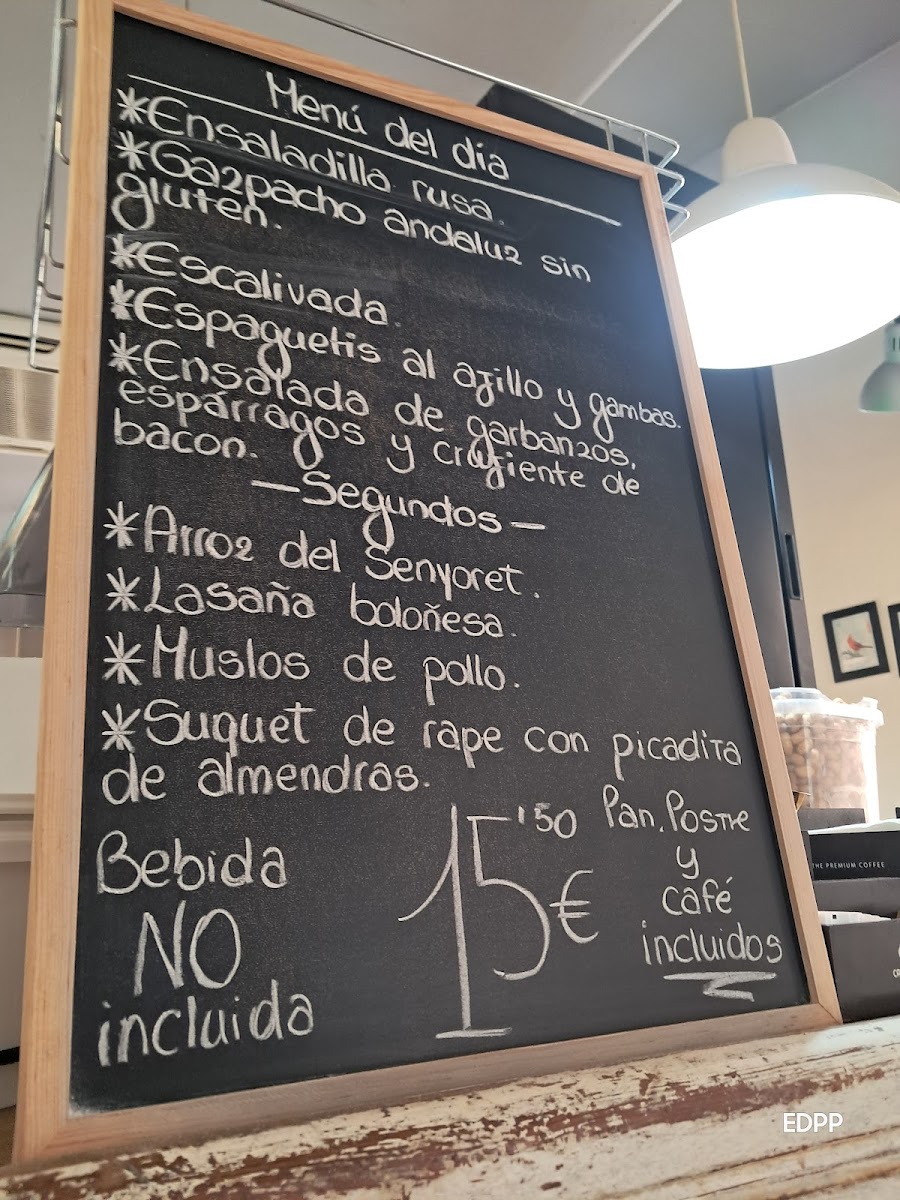 Menú del día
*Ensaladilla rusa.
*Gazpacho andaluz sin
gluten.
*Escalivada.
*Espaguetis al ajillo y gambas.
*Ensalada de garbanzos,
espárragos y crujiente de
bacon.
—Segundos—
*Arroz del Senyoret.
*Lasaña boloñesa.
*Muslos de pollo.
*Suquet de rape con picadita
de almendras.
Bebida
NO
incluida
15'50€
Pan, Postre
y
café
incluidos
THE PREMIUM COFFEE
EDPP